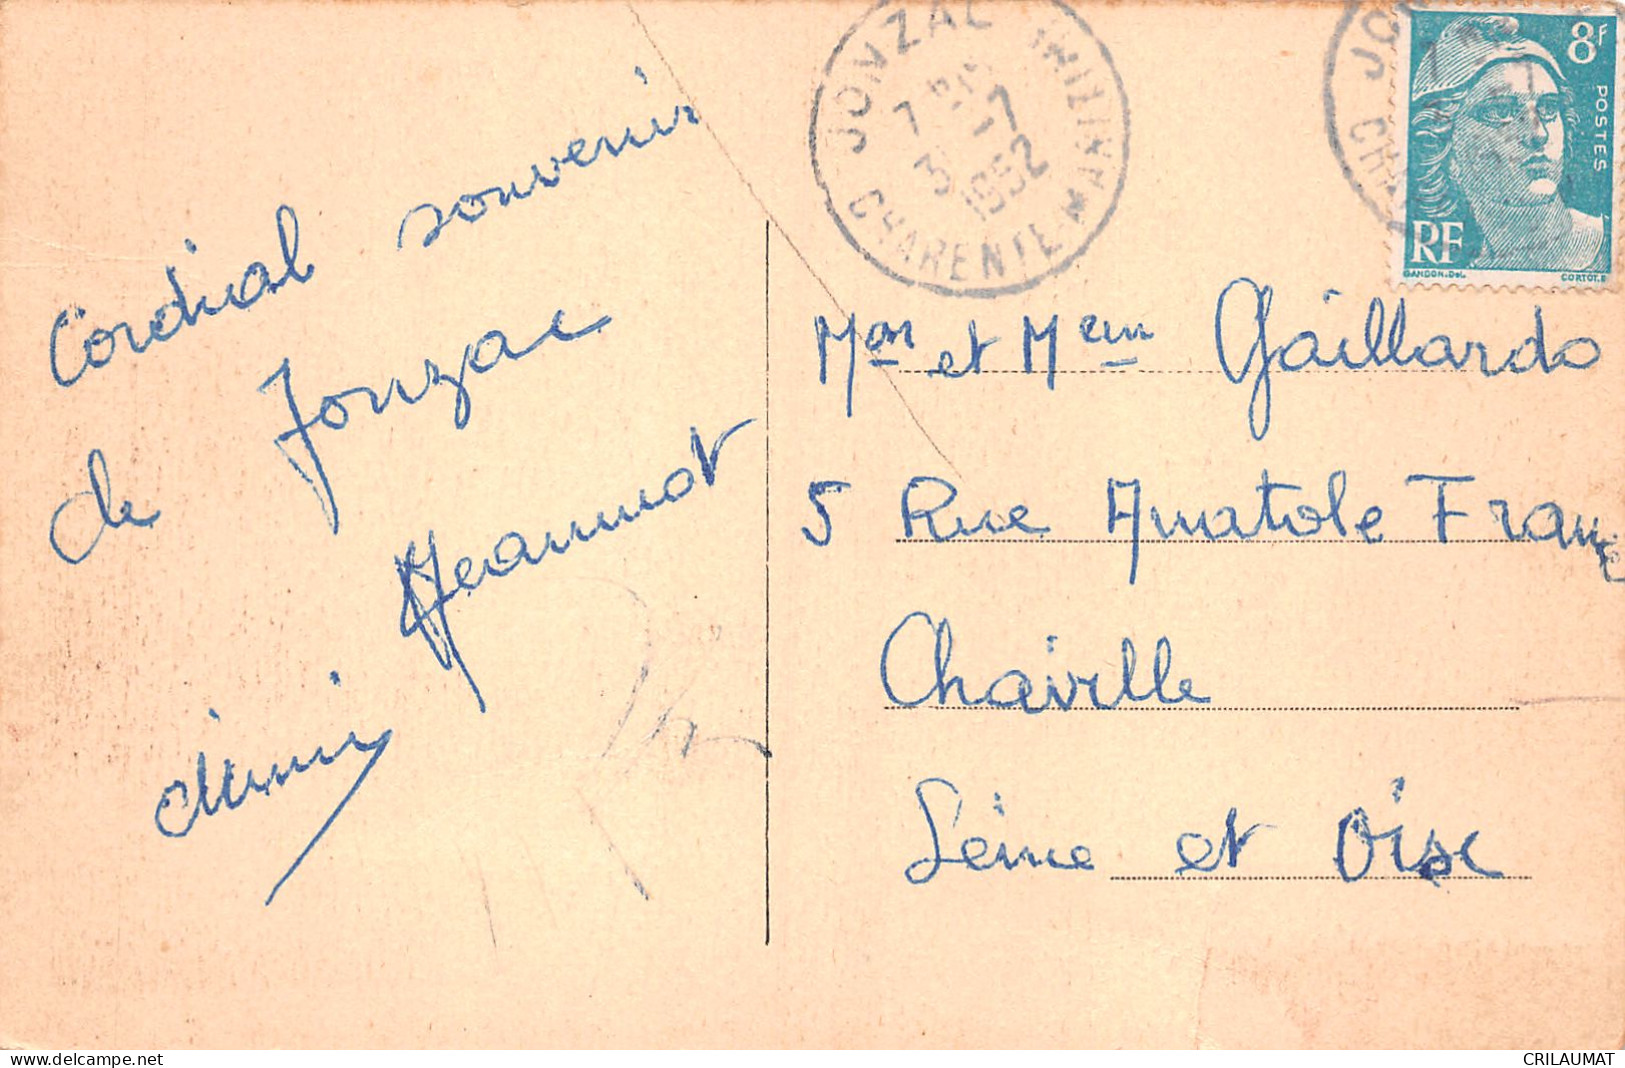 Cordial souvenir
de Jonzac
Jeannot
Mimi
JONZAC
7 1952
CHARENTE-MARITIME
8F
POSTES
RF
GANDON.Del.
CORTOT.S
Mon et Mem Gaillardo
5 Rue Anatole France
Chaville
Seine et Oise
www.delcampe.net
CRILAUMAT